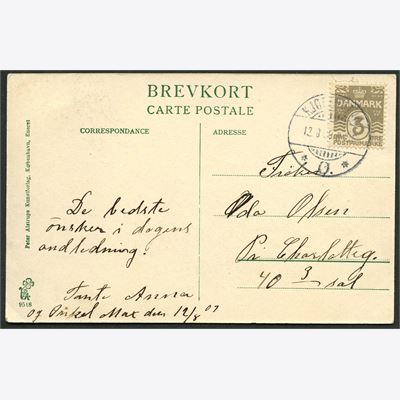 BREVKORT
CARTE POSTALE
CORRESPONDANCE
ADRESSE
DANMARK
3
POSTFRIMÆRKE
12.8
* Ø. *
Peter Alstrups Kunstforlag, København, Eneret
9518
De bedste
ønsker i dagens
andledning!
Tante Anna
og Onkel Max den 12/8 07
Frøken
Oda Olsen
Pr Charlotteg.
40 3 sal